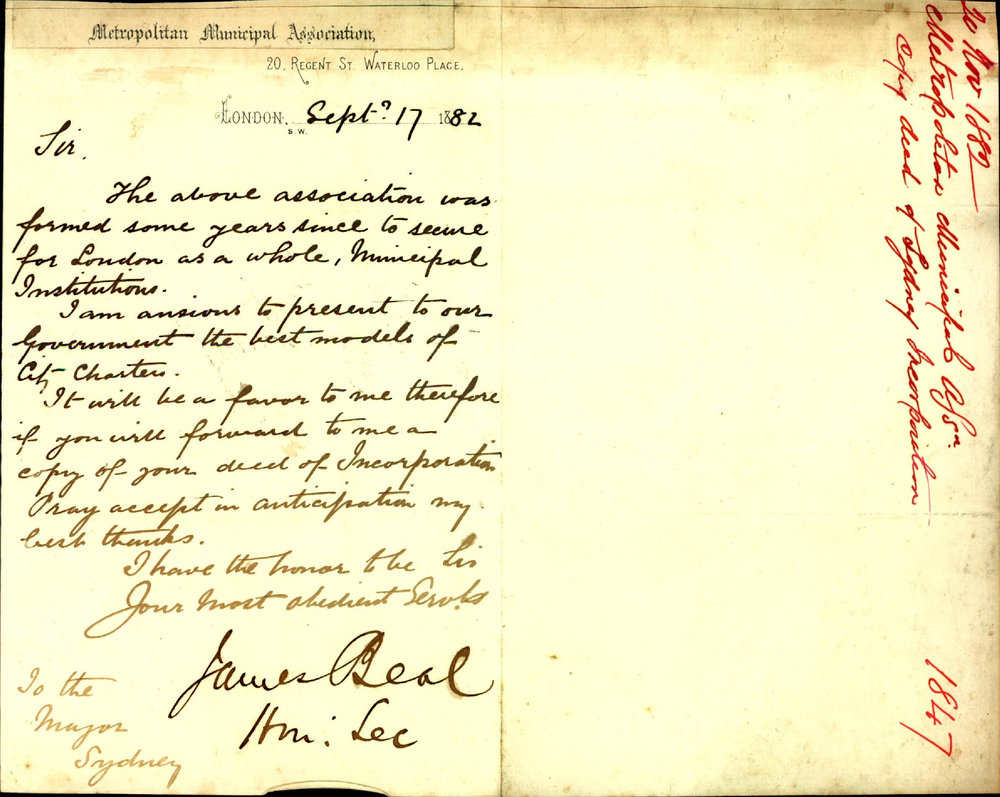 Metropolitan Municipal Association,
20. Regent St. Waterloo Place.
London. S.W. Sept. 17 1882
Sir.
The above association was
formed some years since to secure
for London as a whole, Municipal
Institutions.
I am ansious to present to our
Government the best models of
City Charters.
It will be a favor to me therefore
if you will forward to me a
copy of your deed of Incorporation
Pray accept in anticipation my
best thanks.
I have the honor to be Sir
Your Most obedient Servt.
James Beal
Hon: Sec
To the
Mayor
Sydney
20 Nov 1882
Metropolitan Municipal Assn.
Copy deed of Sydney Incorporation
1847